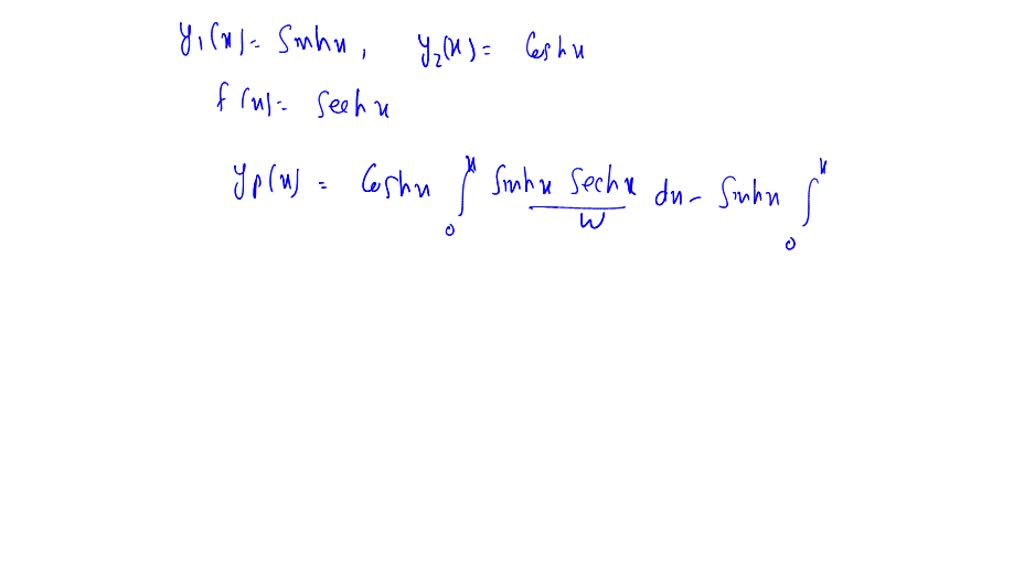 y₁(x) = Sinhx, y₂(x) = Coshx
f(x) = Sechx
yp(x) = Coshx ∫₀ˣ Sinhx Sechx / W dx - Sinhx ∫₀ˣ